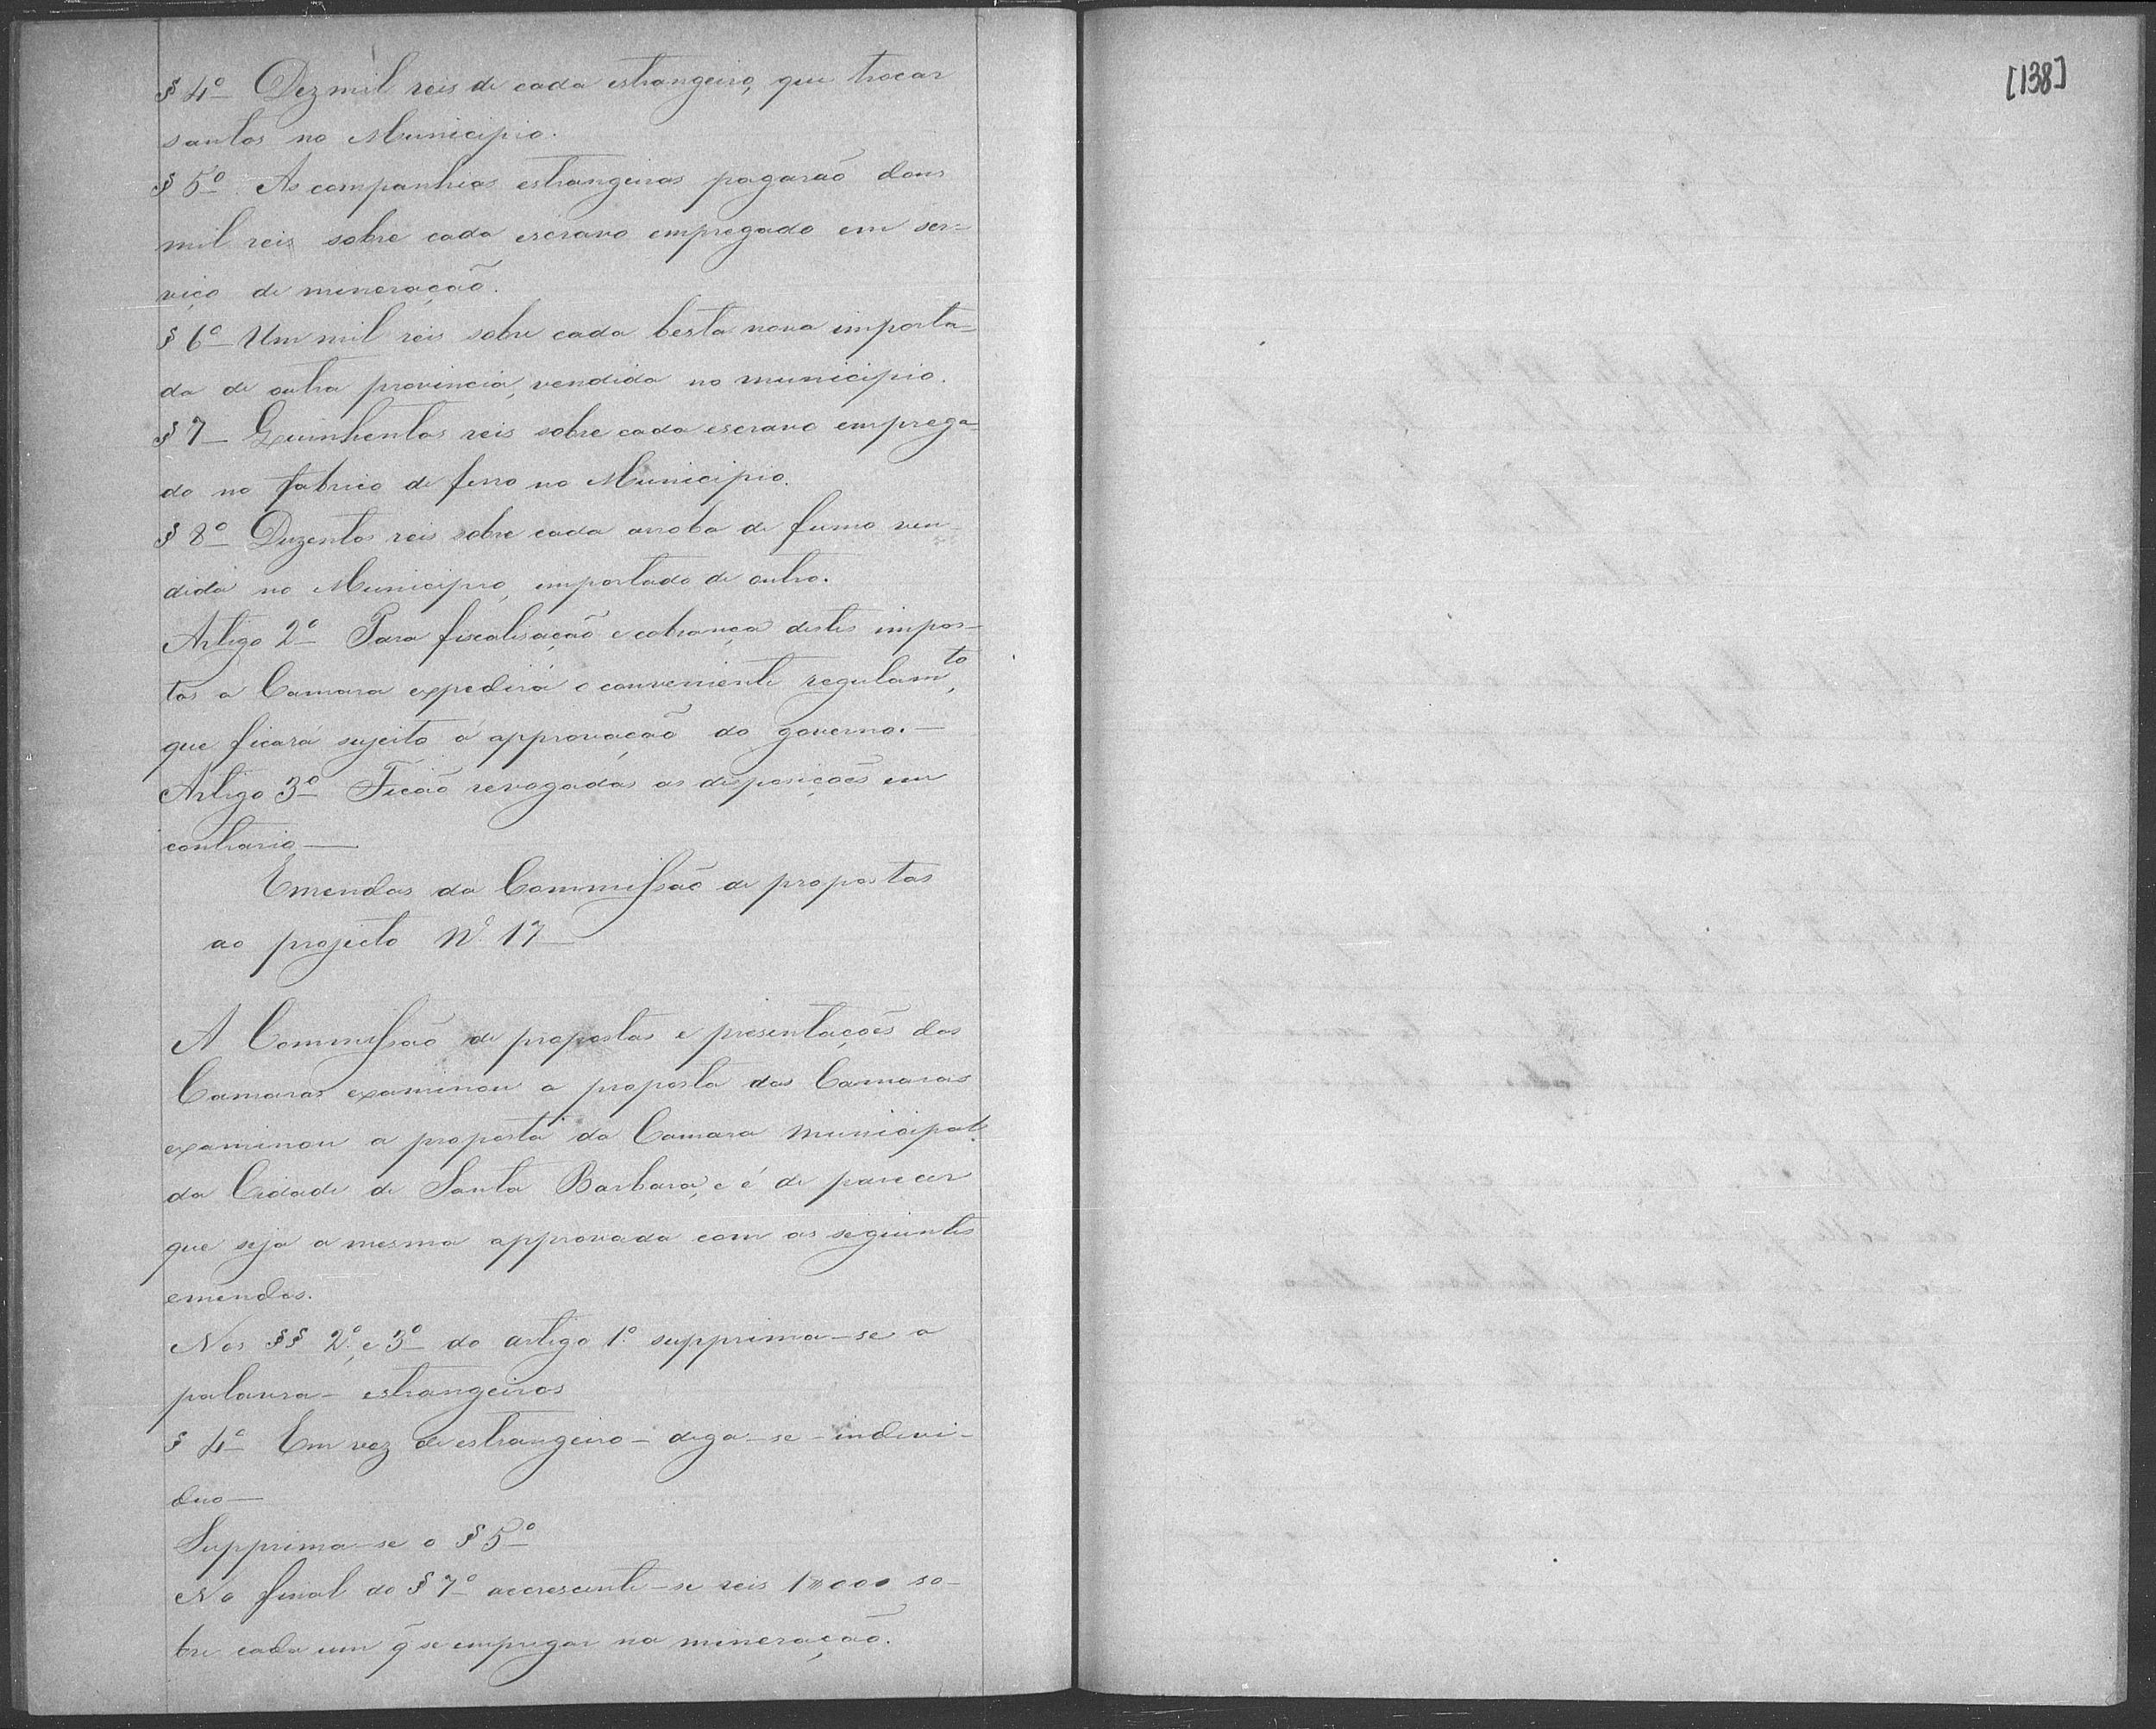 § 4º Dez mil reis de cada estrangeiro, que trocar
santos no Municipio.
§ 5º As companhias estrangeiras pagarão dous
mil reis sobre cada escravo empregado em ser-
viço de mineração.
§ 6º Um mil reis sobre cada besta nova importa-
da de outra provincia, vendida no municipio.
§ 7 Quinhentos reis sobre cada escravo emprega-
do no fabrico de ferro no Municipio.
§ 8º Duzentos reis sobre cada arroba de fumo ven-
dida no Municipio, importado de outro.
Artigo 2º Para fiscalisação e cobrança destes impos-
tos a Camara expedirá o conveniente regulamto,
que ficará sujeito á approvação do governo.—
Artigo 3º Ficão revogadas as disposições em
contrario—
Emendas da Commissão de propostas
ao projecto Nº 17
A Commissão de propostas e presentações das
Camaras examinou a proposta das Camaras
examinou a proposta da Camara Municipal
da Cidade de Santa Barbara, e é de parecer
que seja a mesma approvada com as seguintes
emendas.
Nos §§ 2º, e 3º do artigo 1º supprima-se a
palavra - estrangeiros
§ 4º Em vez de estrangeiro - diga-se - indivi-
duo—
Supprima-se o § 5º
No final do § 7º accrescente-se reis 1$000 so-
bre cada um q̃ se empregar na mineração.
[138]